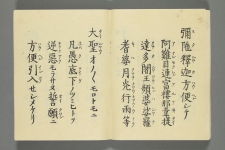 彌陀釋迦方便シテ
阿難目連富樓那韋提
達多闍王頻婆娑羅
耆婆月光行雨等
大聖オノ〱モロトモニ
凡愚底下ノツミヒトヲ
逆惡モラサヌ誓願ニ
方便引入セシメケリ